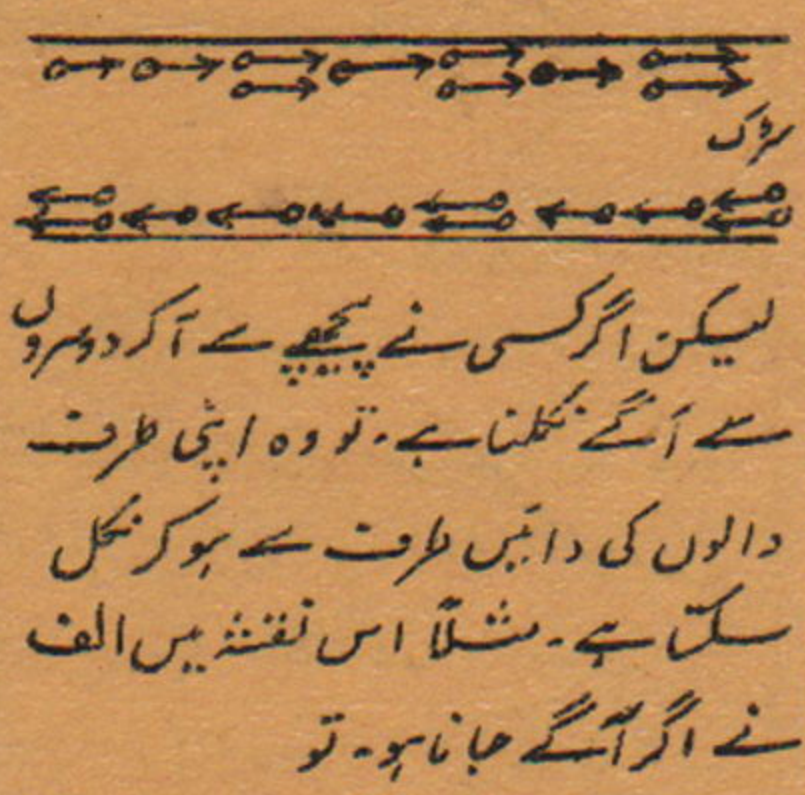 سڑک
لیکن اگر کسی نے پیچھے سے آ کر دوسروں
سے آگے نکلنا ہے۔ تو وہ اپنی طرف
والوں کی دائیں طرف سے ہو کر نکل
سکتا ہے۔ مثلاً اس نقشہ میں الف
نے اگر آگے جانا ہو۔ تو